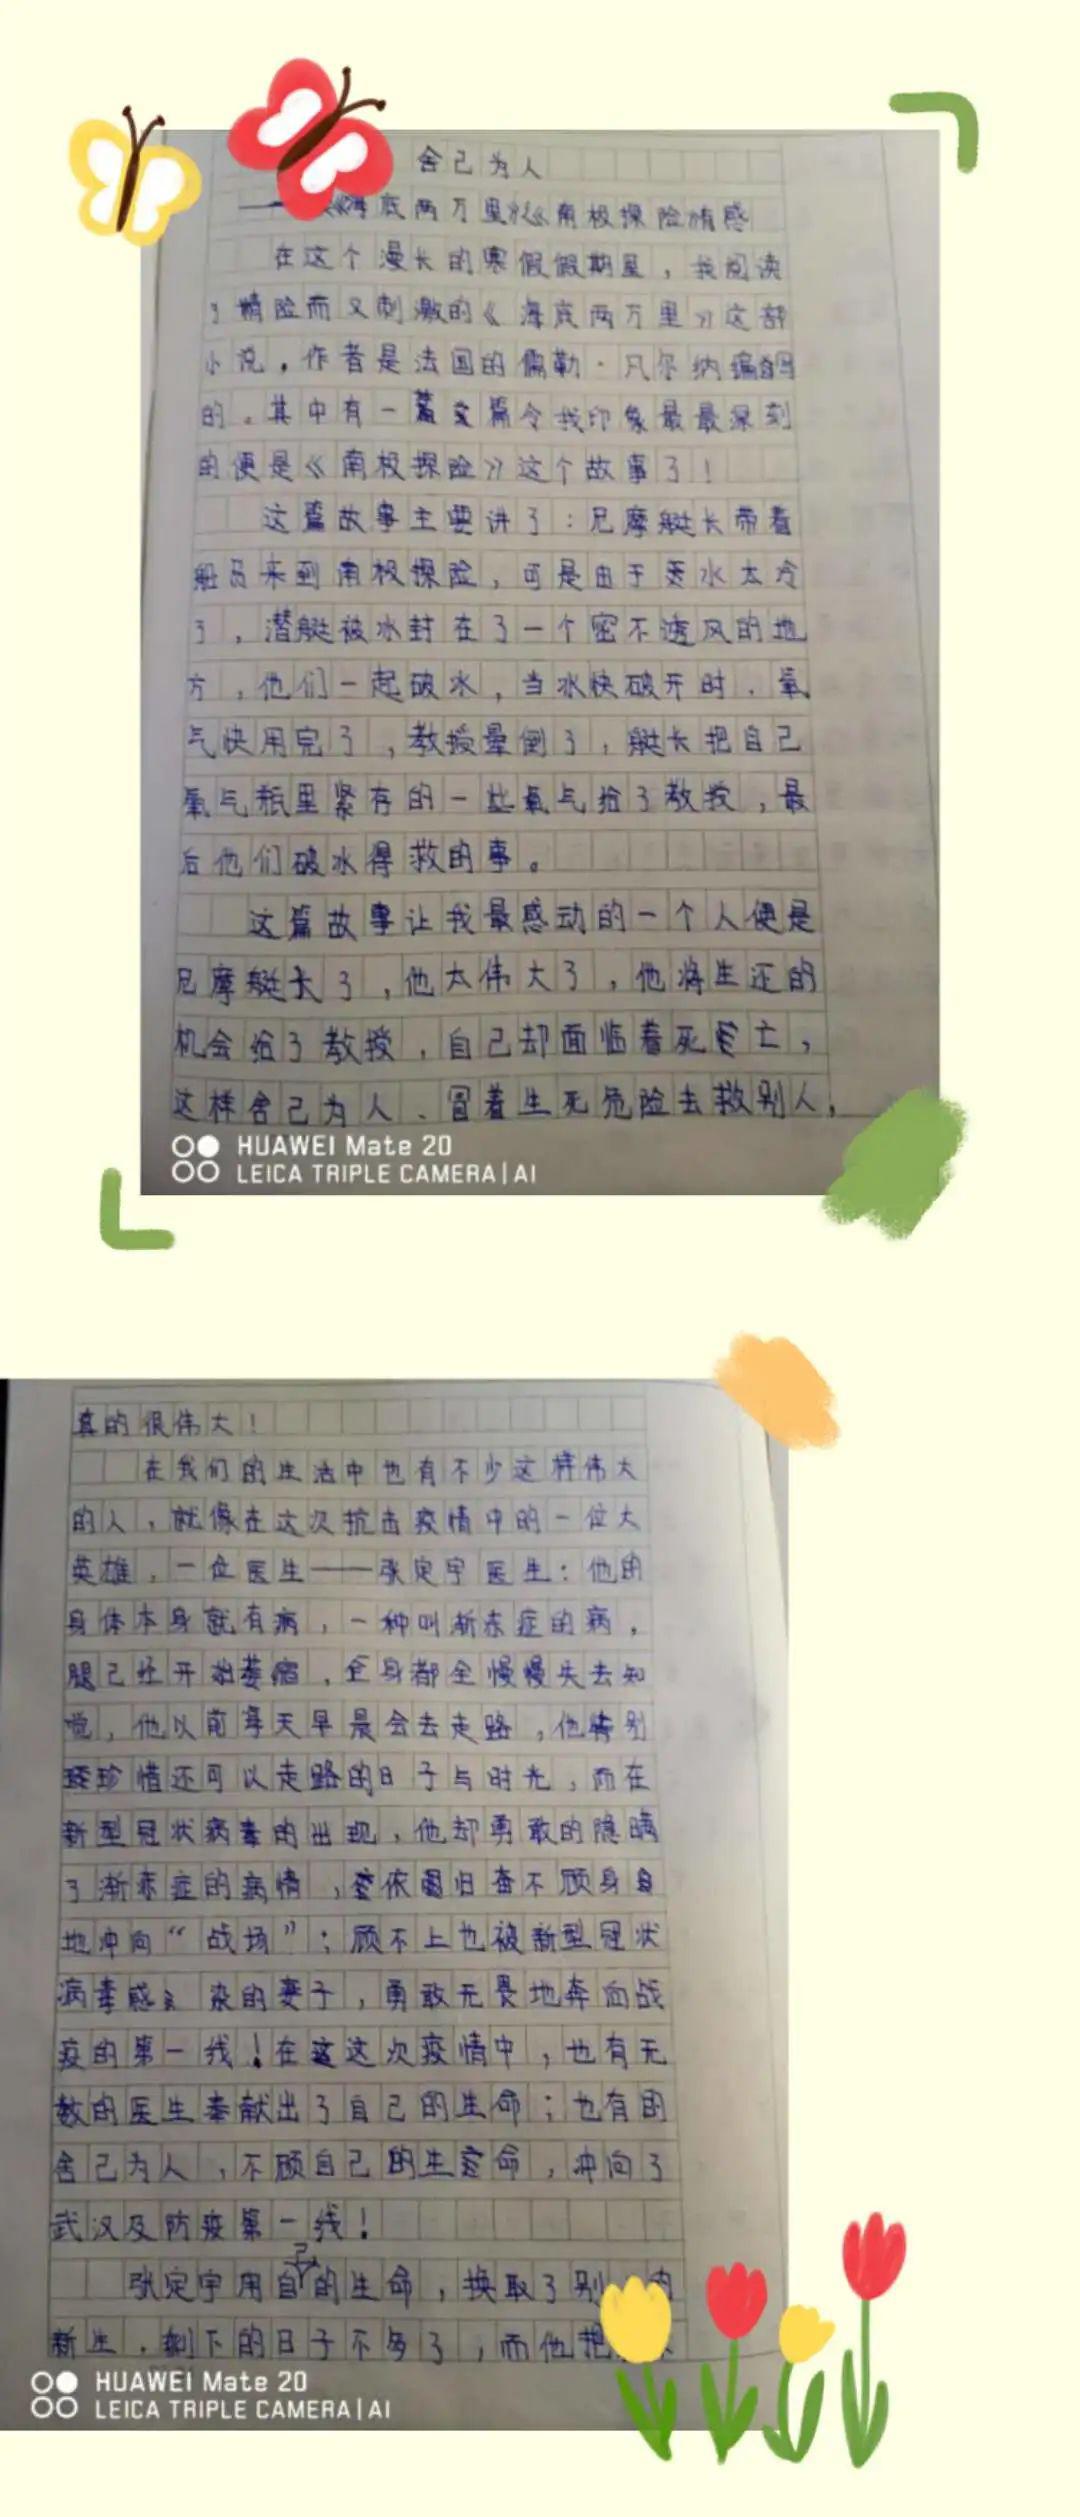 舍己为人
——《海底两万里》《南极探险》有感
在这个漫长的寒假假期里，我阅读
了精险而又刺激的《海底两万里》这部
小说，作者是法国的儒勒·凡尔纳编写
的。其中有一篇令我印象最最深刻
的便是《南极探险》这个故事了！
这篇故事主要讲了：尼摩艇长带着
船员来到南极探险，可是由于水太冷
了，潜艇被冰封在了一个密不透风的地
方，他们一起破冰，当冰快破开时，氧
气快用完了，教授晕倒了，艇长把自己
氧气瓶里紧存的一些氧气给了教授，最
后他们破冰得救的事。
这篇故事让我最感动的一个人便是
尼摩艇长了，他太伟大了，他将生还的
机会给了教授，自己却面临着死亡，
这样舍己为人、冒着生死危险去救别人，
HUAWEI Mate 20
LEICA TRIPLE CAMERA|AI
真的很伟大！
在我们的生活中也有不少这样伟大
的人，就像在这次抗击疫情中的一位大
英雄，一位医生——张定宇医生：他的
身体本身就有病，一种叫渐冻症的病，
腿已经开始萎缩，全身都会慢慢失去知
觉，他以前每天早晨会去走路，他特别
珍惜还可以走路的日子与时光，而在
新型冠状病毒的出现，他却勇敢的隐瞒
了渐冻症的病情，依旧奋不顾身
地冲向“战场”；顾不上也被新型冠状
病毒感染的妻子，勇敢无畏地奔向战
疫的第一线！在这次疫情中，也有无
数的医生奉献出了自己的生命；也有的
舍己为人，不顾自己的生命，冲向了
武汉及防疫第一线！
张定宇用自己的生命，换取了别的
新生，剩下的日子不多了，而他把
HUAWEI Mate 20
LEICA TRIPLE CAMERA|AI